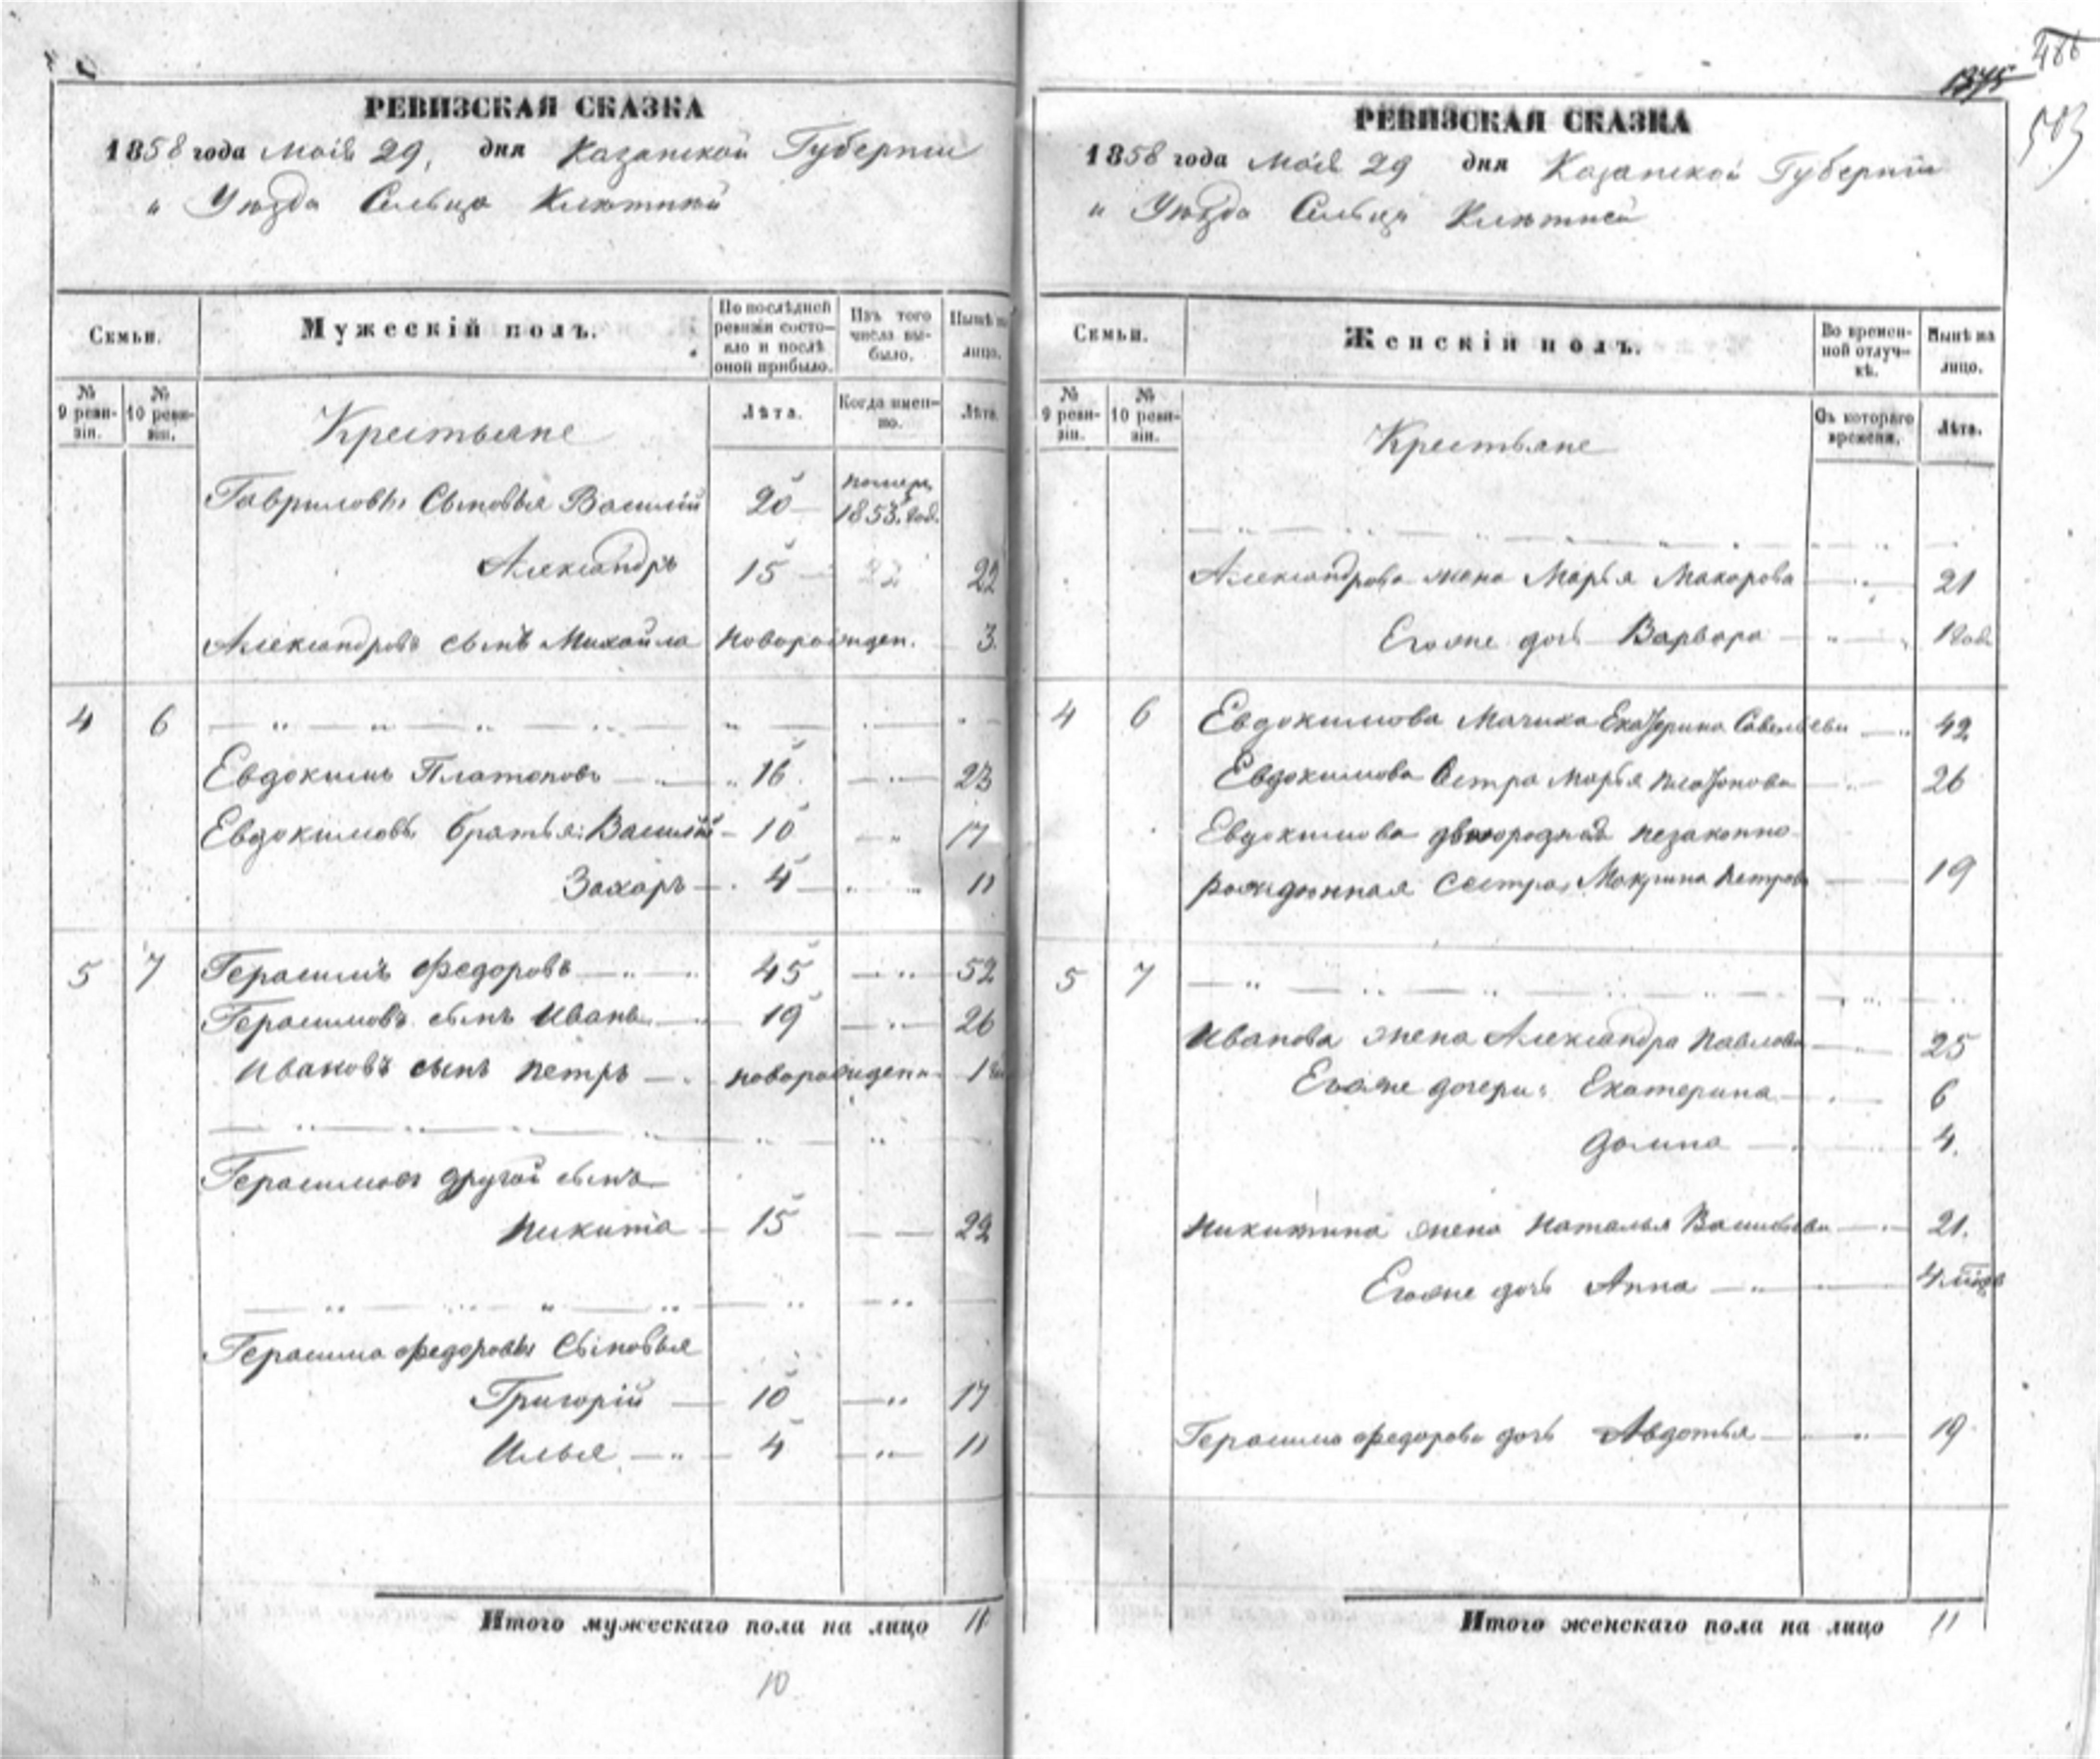 РЕВИЗСКАЯ СКАЗКА
1858 года Маія 29, дня Казанской Губерніи
" Уѣзда Сельца Клѣтней
Семьи.
Мужескій полъ.
По послѣдней ревизіи состояло и послѣ оной прибыло.
Изъ того числа выбыло.
Нынѣ на лицо.
№ 9 ревизіи.
№ 10 ревизіи.
Крестьяне
Лѣта.
Когда именно.
Лѣта.
Гавриловы Сыновья Василій 20 – помер. 1853. год.
Александръ 15 – 22
Александровъ сынъ Михайла новорожден. 3.
4 6
Евдокимъ Платоновъ 16 23
Евдокимовы братья: Василій – 10 17
Захаръ – 4 11
5 7 Герасимъ Федоровъ 45 52
Герасимовъ сынъ Иванъ 19 26
Ивановъ сынъ Петръ новорожден. 1
Герасимовъ другой сынъ
Никита – 15 22
Герасима Федорова Сыновья
Григорій 10 17
Илья 4 11
Итого мужескаго пола на лицо 11
10
1375
486
503
РЕВИЗСКАЯ СКАЗКА
1858 года Маія 29 дня Казанской Губерніи
" Уѣзда Сельца Клѣтней
Семьи.
Женскій полъ.
Во временной отлучкѣ.
Нынѣ на лицо.
№ 9 ревизіи.
№ 10 ревизіи.
Крестьяне
Съ котораго времени.
Лѣта.
Александрова жена Марья Макарова 21
Егоже дочь Варвара 1 год.
4 6 Евдокимова Мачиха Екатерина Савельева 42
Евдокимова Сестра Марья Платонова 26
Евдокимова двоюродная незаконно-
рожденная сестра, Макрина Петрова 19
5 7
Иванова жена Александра Павлова 25
Егоже дочери: Екатерина 6
Домна 4.
Никитина жена Наталья Васильева 21.
Егоже дочь Анна 4
Герасима Федорова дочь Авдотья 19
Итого женскаго пола на лицо 11